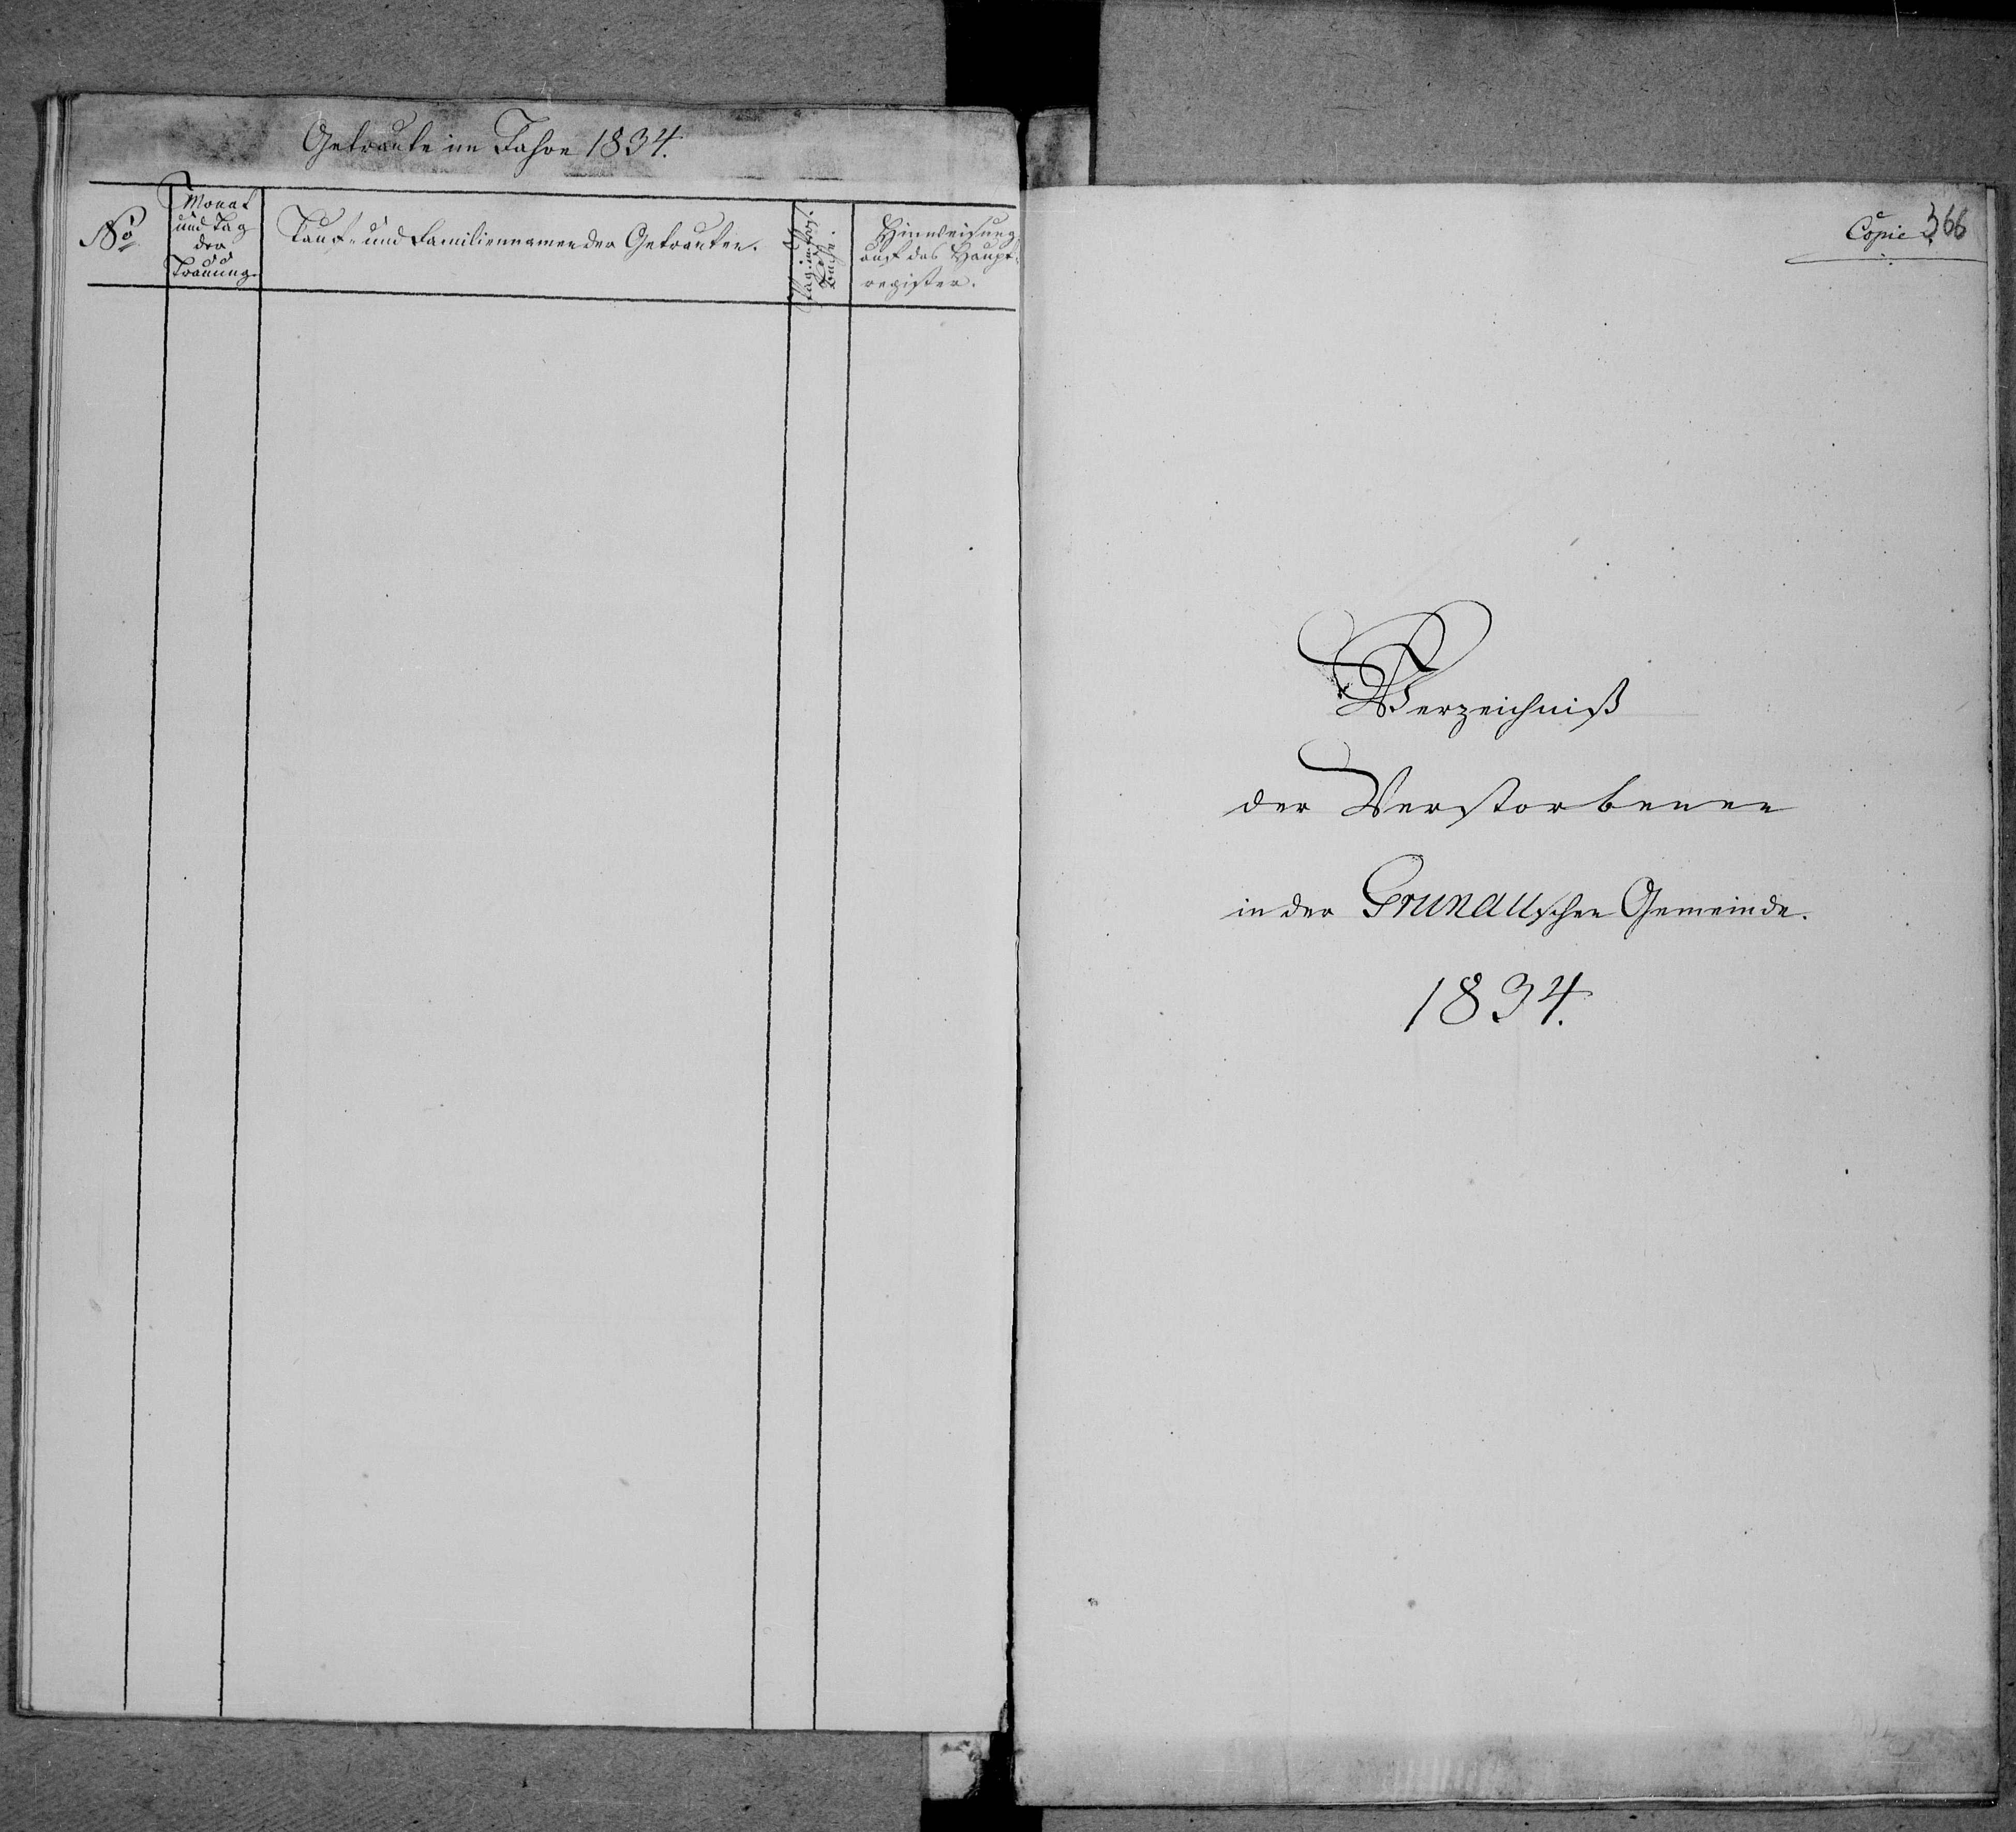 Getraute im Jahre 1834.
No
Monat
und Tag
der
Trauung.
Tauf- und Familiennamen der Getrauten.
Pag. im
Buche.
Hinweisung
auf das Haupt-
register.
Copie
366
Verzeichniß
der Verstorbenen
in der Grunauschen Gemeinde.
1834.